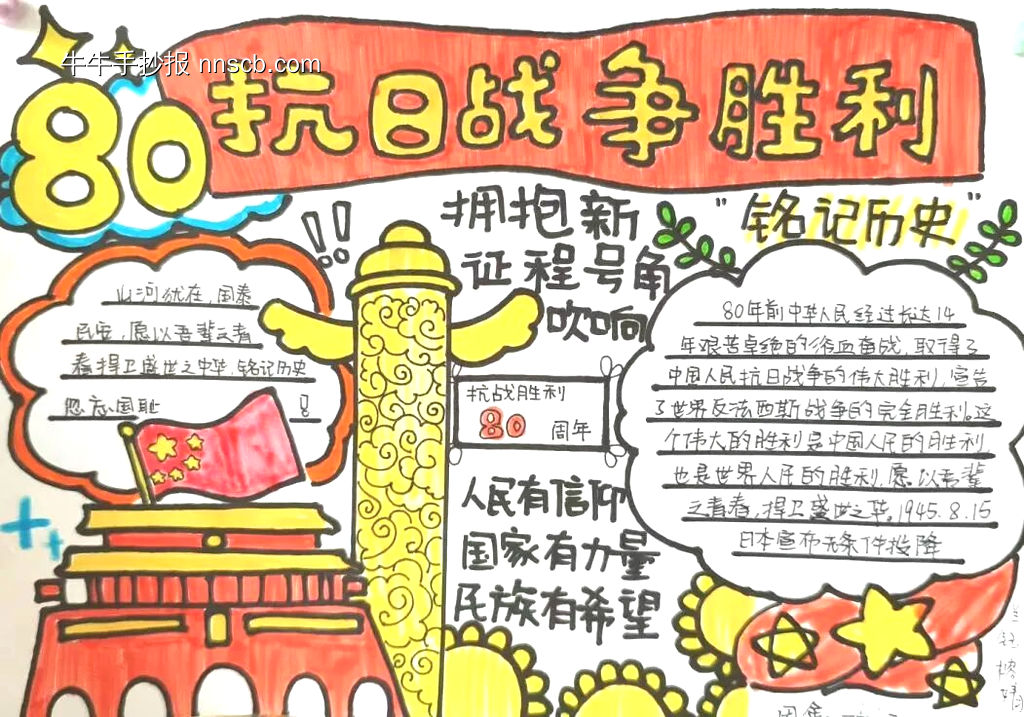 牛牛手抄报 nnscb.com
80
抗日战争胜利
拥抱新
征程号角
吹响
"铭记历史"
山河犹在,国泰
民安,愿以吾辈之青
春捍卫盛世之中华,铭记历史
勿忘国耻!
抗战胜利
80 周年
人民有信仰
国家有力量
民族有希望
80年前中华人民经过长达14
年艰苦卓绝的浴血奋战,取得了
中国人民抗日战争的伟大胜利,宣告
了世界反法西斯战争的完全胜利。这
个伟大的胜利是中国人民的胜利
也是世界人民的胜利,愿以吾辈
之青春,捍卫盛世之华。1945.8.15
日本宣布无条件投降